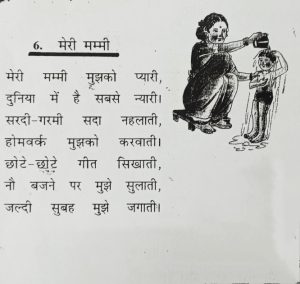 6. मेरी मम्मी
मेरी मम्मी मुझको प्यारी,
दुनिया में है सबसे न्यारी।
सरदी-गरमी सदा नहलाती,
होमवर्क मुझको करवाती।
छोटे-छोटे गीत सिखाती,
नौ बजने पर मुझे सुलाती,
जल्दी सुबह मुझे जगाती।